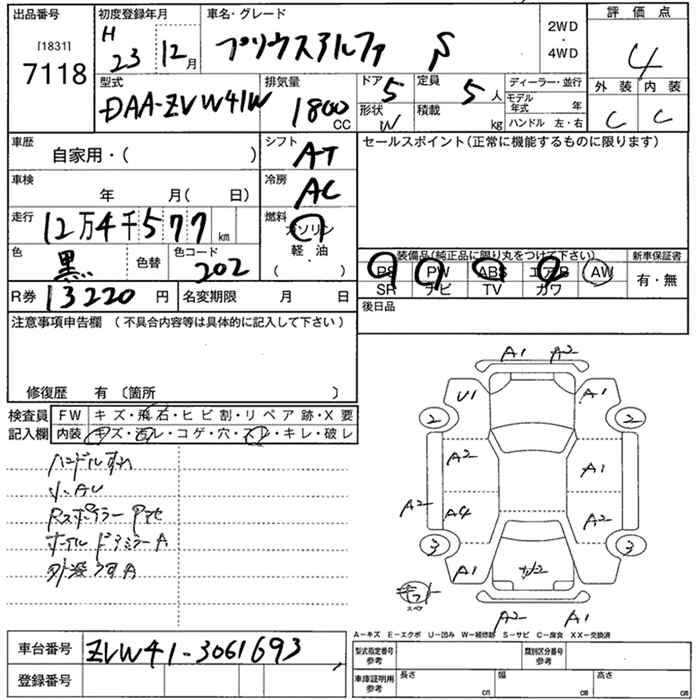 出品番号 初度登録年月 車名・グレード 評価点
[1831] 7118 H 23 12月 プリウスアルファ S 2WD・4WD 4
型式 排気量 ドア 定員 ディーラー・並行 外装 内装
DAA-ZVW41W 1800CC 5 5人 モデル年式 年 C C
形状 W 積載 kg ハンドル 左・右
車歴 シフト セールスポイント(正常に機能するものに限ります)
自家用・( ) AT
車検 冷房
年 月( 日) AC
走行 燃料
12万4千577km ガソリン
軽・油
( )
色 色替 色コード 装備品(純正品に限り丸をつけて下さい) 新車保証書
黒 202 PS PW ABS エアB AW 有・無
SR ナビ TV カワ
R券 13220円 名変期限 月 日 後日品
注意事項申告欄 (不具合内容等は具体的に記入して下さい)
修復歴 有 〔箇所 〕
検査員 FW キズ・飛石・ヒビ割・リペア跡・X要
記入欄 内装 キズ・汚レ・コゲ・穴・スレ・キレ・破レ
ハンドルすれ
Rスポイラー
ホイル ドアミラーA
外装うすA
A1 A2
U1 A1
2 2
A2 A1
A2 A4 A2
3 3
A1 A1
スペア
A2 A1
A-キズ E-エクボ U-凹み W-補修跡 S-サビ C-腐食 XX-交換済
車台番号 ZVW41-3061693 型式指定番号 参考 類別区分番号 参考
登録番号 車庫証明用 参考 長さ cm 幅 cm 高さ cm